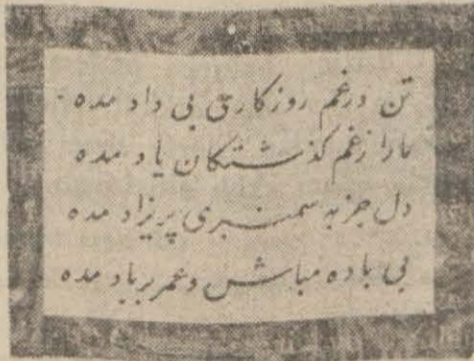 تن در غم روزگار بی داد مده
ما را ز غم گذشتگان یاد مده
دل جز به سمنبری پریزاد مده
بی باده مباش و عمر بر باد مده